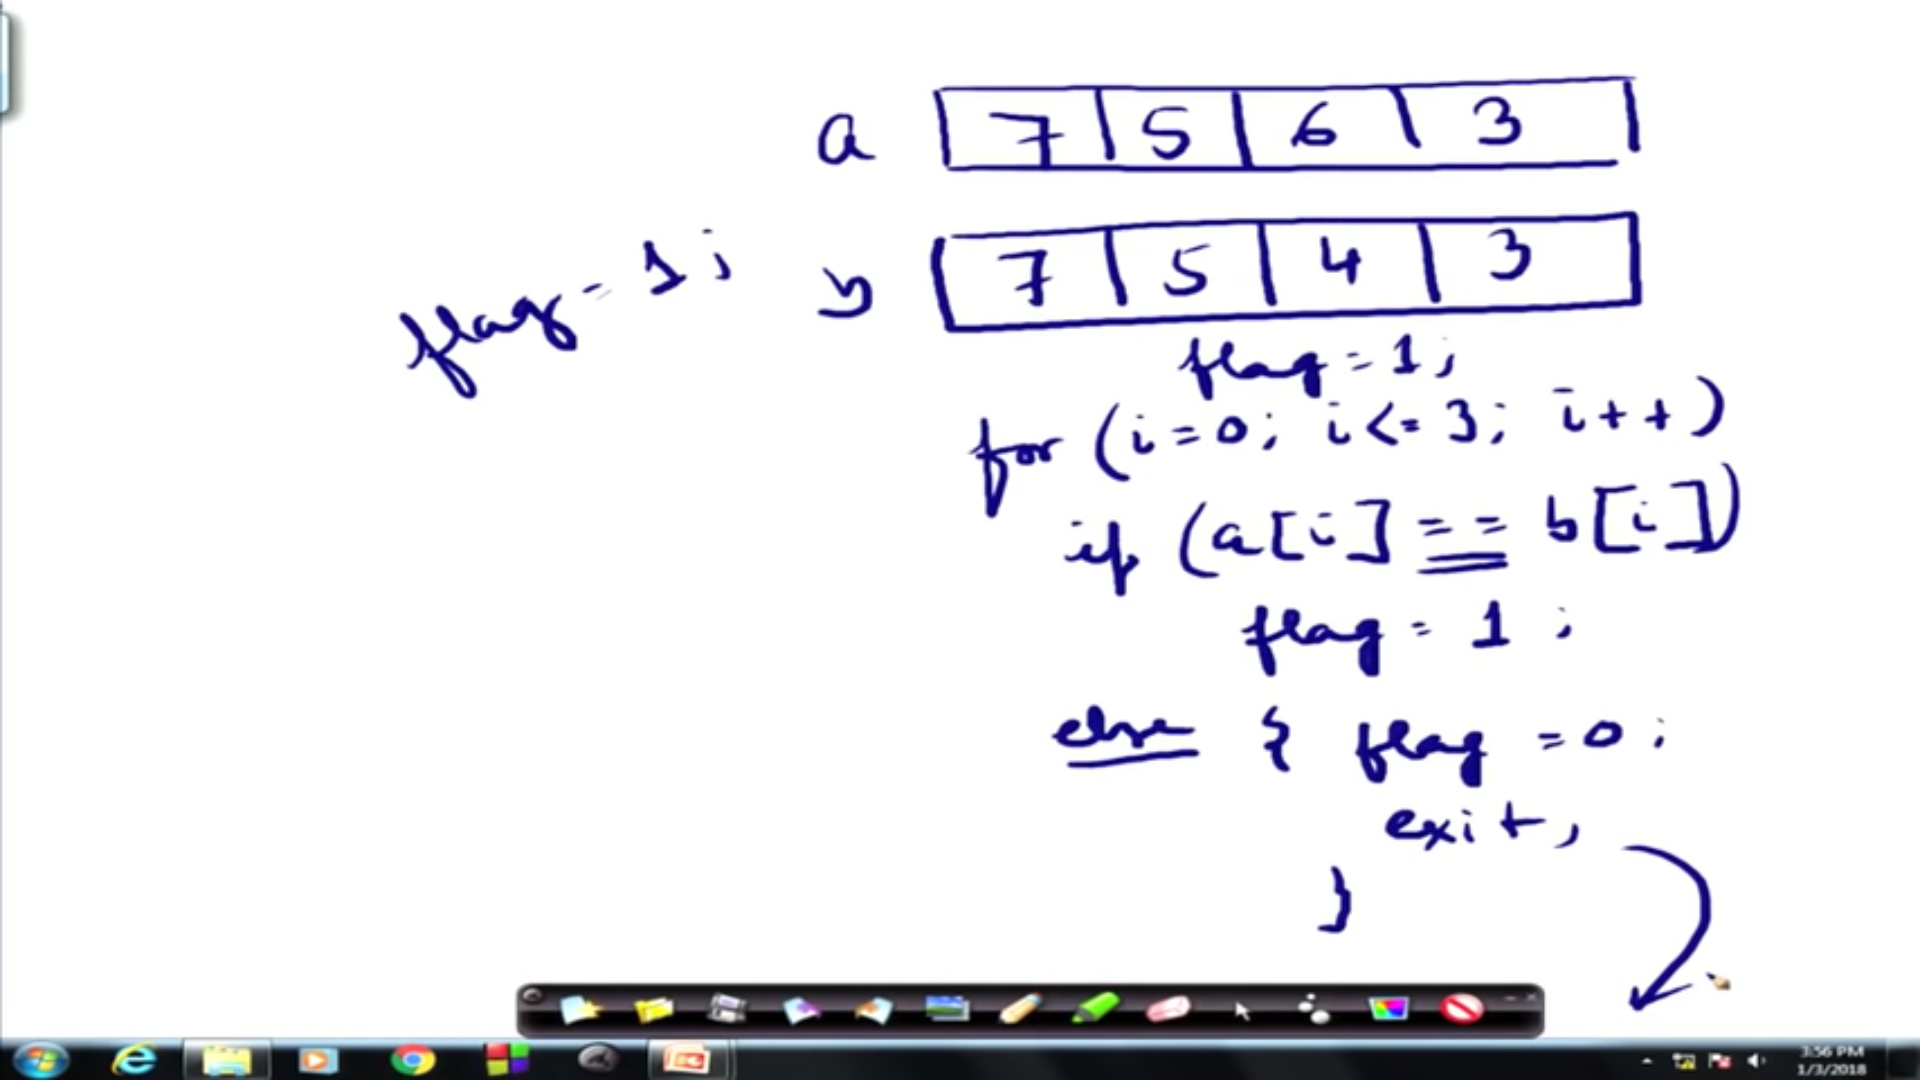 a 7 5 6 3
b 7 5 4 3
flag = 1;
flag = 1;
for (i=0; i<=3; i++)
if (a[i] == b[i])
flag = 1;
else { flag = 0;
exit;
}
3:56 PM
1/3/2018